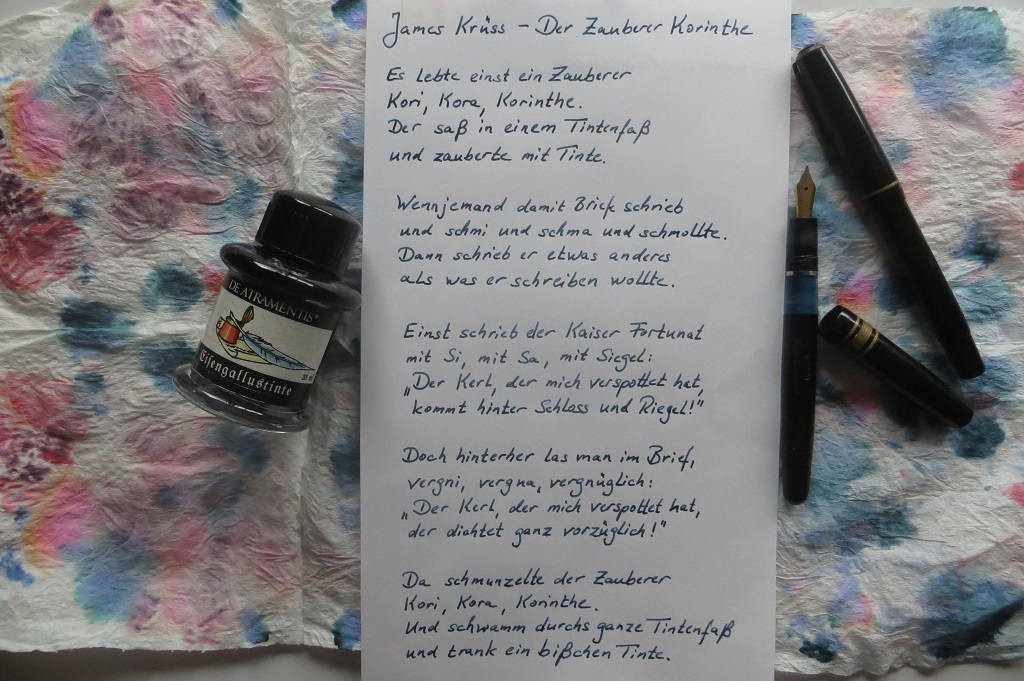 DE ATRAMENTIS
Eisengallustinte
James Krüss - Der Zauberer Korinthe
Es lebte einst ein Zauberer
Kori, Kora, Korinthe.
Der saß in einem Tintenfaß
und zauberte mit Tinte.
Wenn jemand damit Briefe schrieb
und schmi und schma und schmollte.
Dann schrieb er etwas anderes
als was er schreiben wollte.
Einst schrieb der Kaiser Fortunat
mit Si, mit Sa, mit Siegel:
„Der Kerl, der mich verspottet hat,
kommt hinter Schloss und Riegel!"
Doch hinterher las man im Brief,
vergni, vergna, vergnüglich:
„Der Kerl, der mich verspottet hat,
der dichtet ganz vorzüglich!"
Da schmunzelte der Zauberer
Kori, Kora, Korinthe.
Und schwamm durchs ganze Tintenfaß
und trank ein bißchen Tinte.